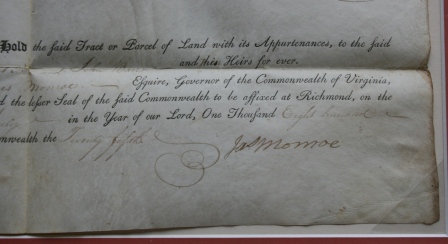 Hold the said Tract or Parcel of Land with its Appurtenances, to the said
and his Heirs for ever.
Monroe Esquire, Governor of the Commonwealth of Virginia,
the lesser Seal of the said Commonwealth to be affixed at Richmond, on the
in the Year of our Lord, One Thousand Eight hundred
nwealth the Twenty fifth
Jas Monroe